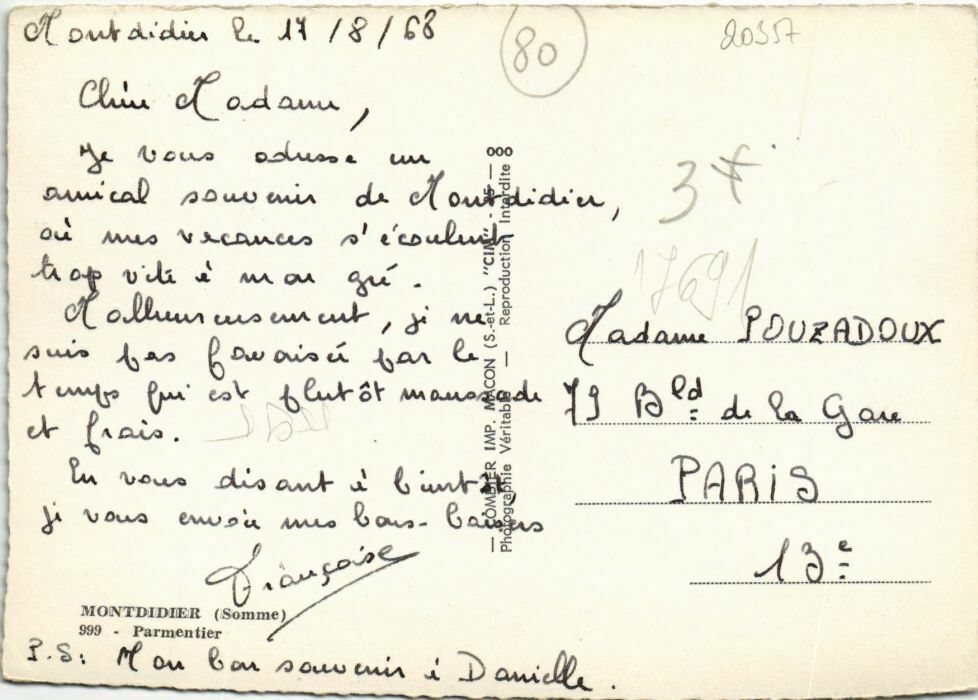 Montdidier le 17/8/68
80
20357
Chère Madame,
Je vous adresse un
amical souvenir de Montdidier,
où mes vacances s'écoulent
trop vite à mon gré.
Malheureusement, je ne
suis pas favorisée par le
temps qui est plutôt maussade
et frais.
En vous disant à bientôt,
je vous envoie mes bons-baisers
Françoise
MONTDIDIER (Somme)
999 - Parmentier
P.S: Mon bon souvenir à Danielle.
— COMBIER IMP. MACON (S.-et-L.) "CIM" — 000
Photographie Véritable — Reproduction Interdite
17691
Madame POUZADOUX
79 Bld de la Gare
PARIS
13e